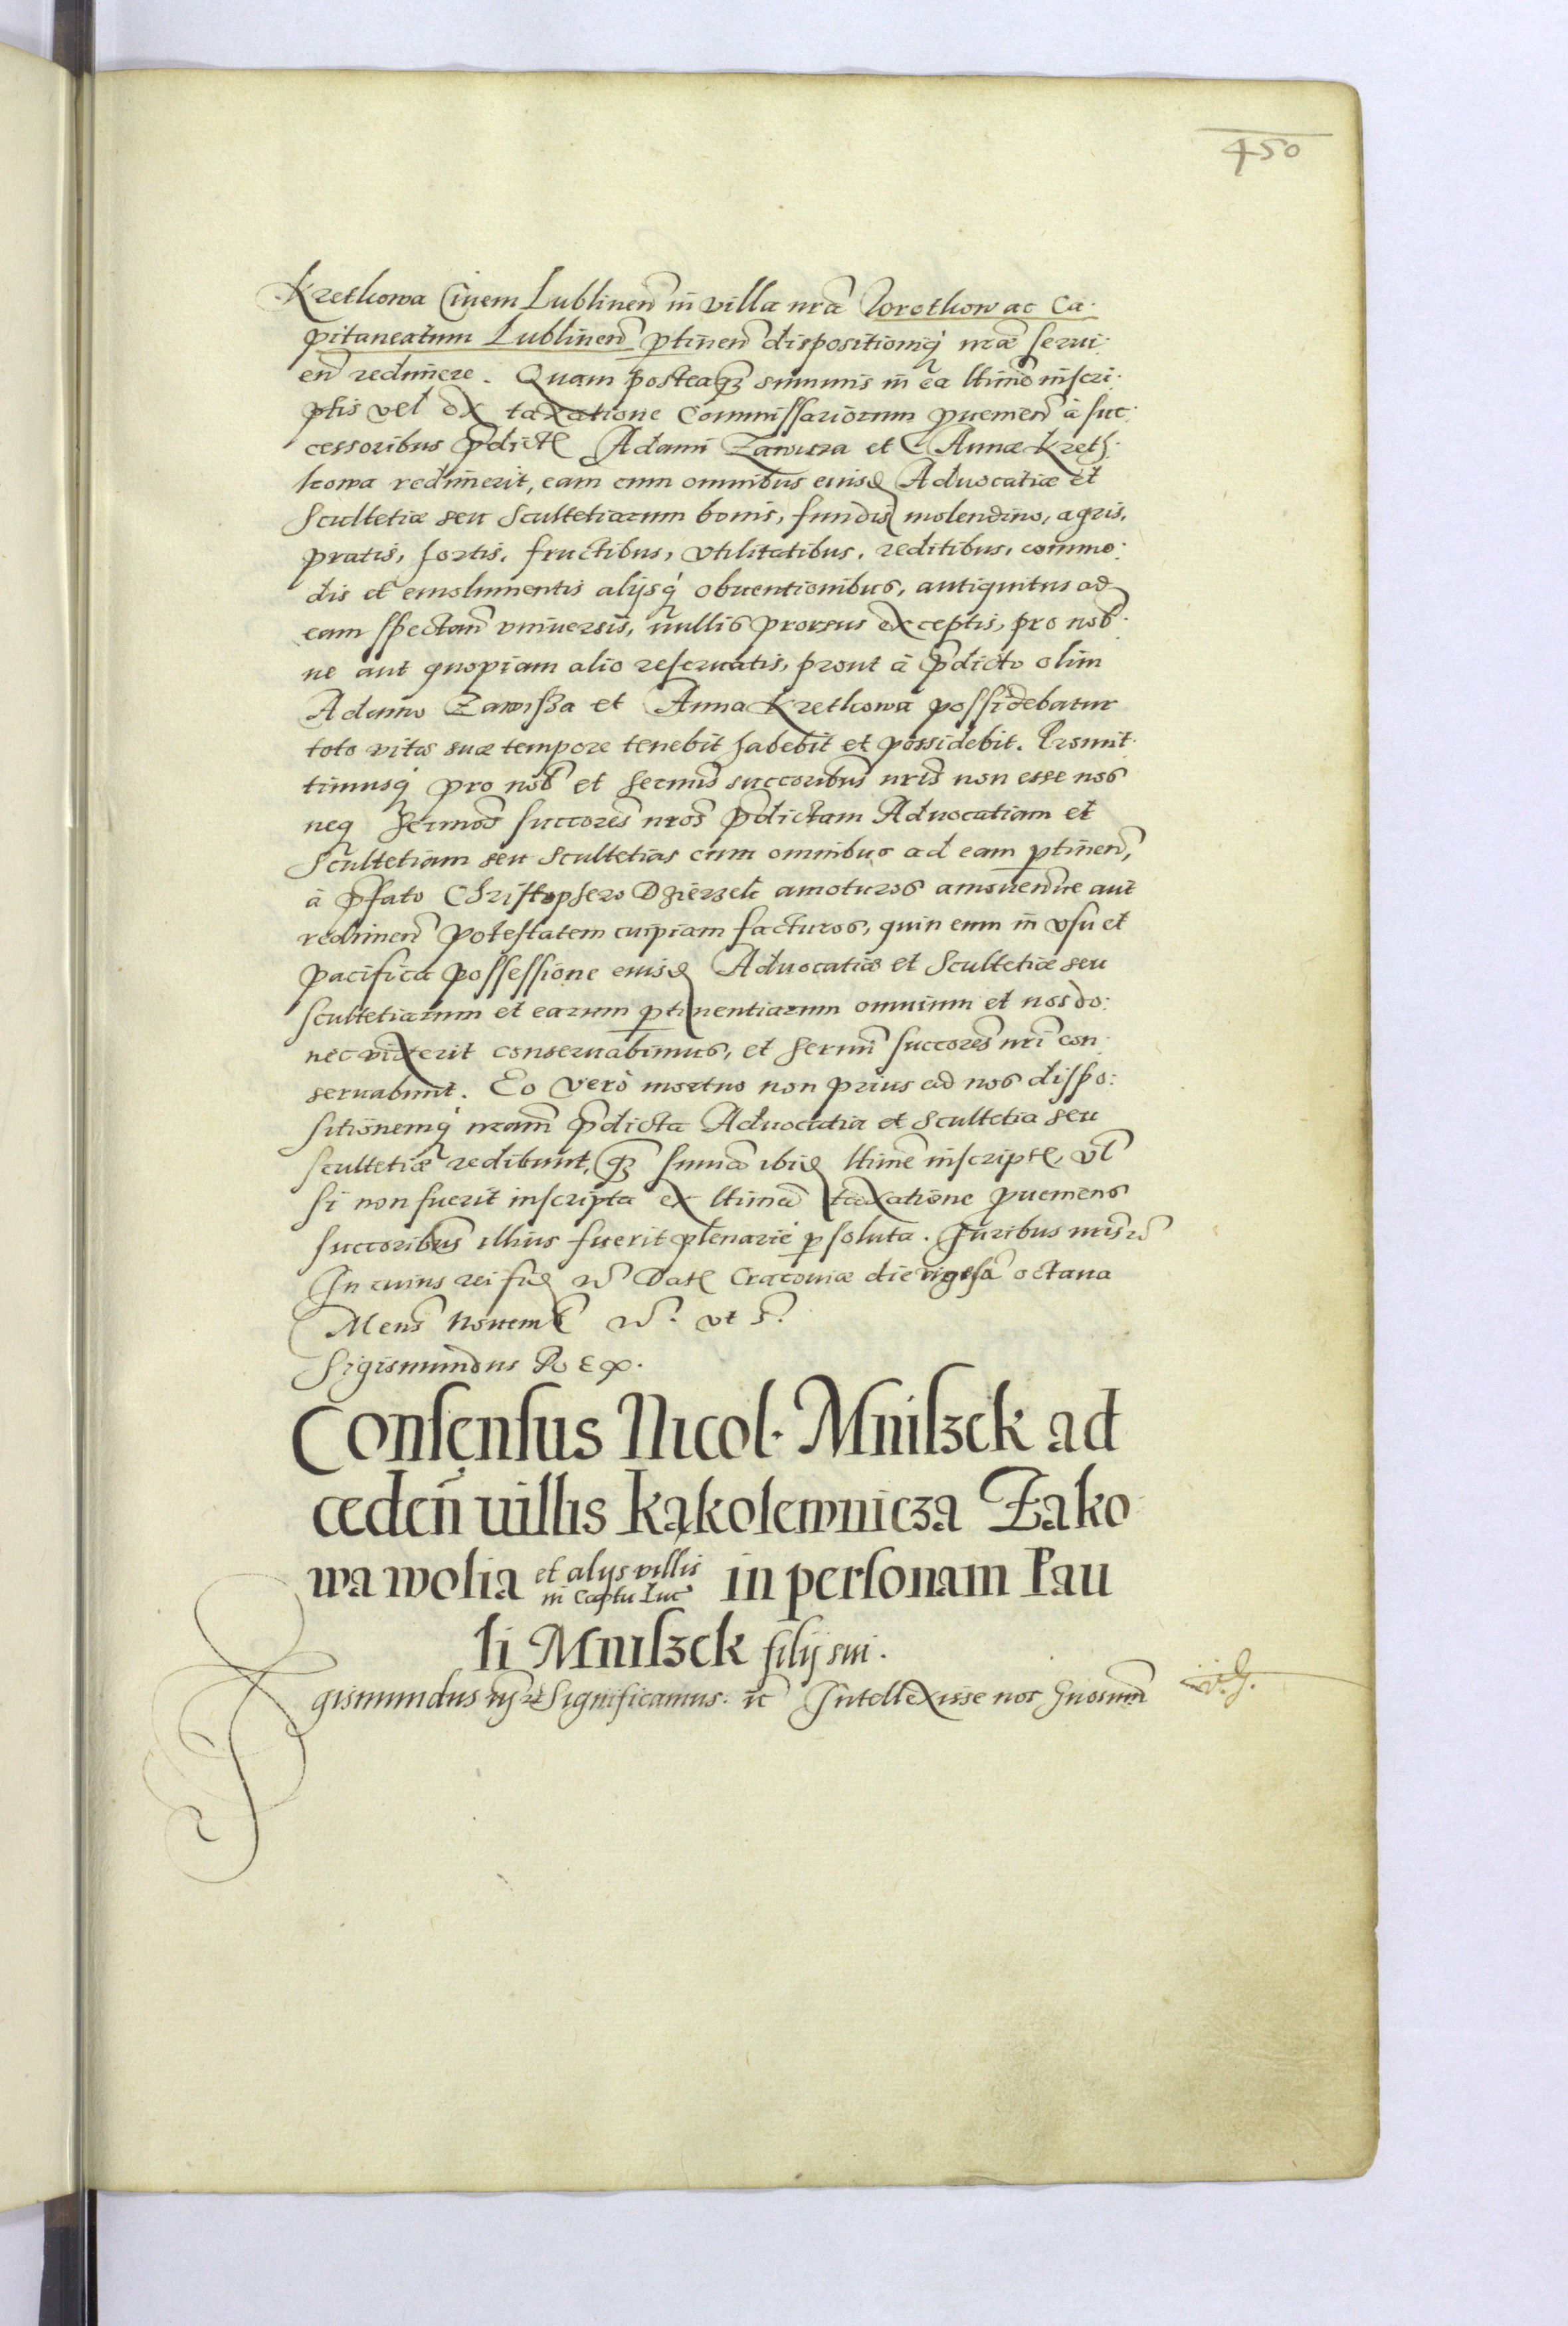 450
Krethowa Ciuem Lublineñ in villa nrã Zorothow ac Ca-
pitaneatum Lublineñ ptineñ dispositioniq̃ nræ serui-
eñ redimere. Quam posteaq̃ summis in ea ltimo inscri-
ptis vel ex taxatione Commissariorum puenieñ à suc-
cessoribus p̃dict Adami Zawisza et Annæ Kreth-
kowa redimerit, eam cum omnibus eiusd Aduocatiæ et
Scultetiæ seu Scultetiarum bonis, fundis molendino, agris,
pratis, hortis, fructibus, vtilitatibus, reditibus, commo-
dis et emolumentis alijsq̃ obuentionibus, antiquitus ad
eam spectañ vniuersis, nullis prorsus exceptis, pro nob-
ne aut quopiam alio reseruatis, prout à p̃dicto olim
Adamo Zawisza et Anna Krethowa possidebatur
toto vitæ suæ tempore tenebit habebit et possidebit. Promit-
timusq̃ pro nob et sermis succoribus nris non esse nos
neq̃ sermos succores nros p̃dictam Aduocatiam et
Scultetiam seu Scultetias cum omnibus ad eam ptineñ,
à p̃fato Christophero Dzierzek amoturos amouendive aut
redimeñ potestatem cuipiam facturos, quin eum in vsu et
pacifica possessione eiusd Aduocatiæ et Scultetiæ seu
scultetiarum et earum ptinentiarum omnium et nos do-
nec vixerit conseruabimus, et sermi succores nri con-
seruabunt. Eo verò mortuo non prius ad nos dispo-
sitionemq̃ nram p̃dicta Aduocatia et Scultetia seu
scultetiæ redibunt, q̃ summa ibid ltime inscript, vl
si non fuerit inscripta ex ltima taxatione pueniens
succoribus illius fuerit plenariè psoluta. Juribus nris etc
In cuius rei fid etc Dat Cracouiæ die vigesa octaua
Mens Nouemb etc. vt s.
Sigismundus Rex.
Consensus Nicol. Mniszck ad
cedeñ uillis Kąkolewnicza Zako-
wa wolia et alijs villis in Captu Luc in personam Pau
li Mniszck filij sui.
Sigismundus etc Significamus. etc Intellexisse nos Gnosum